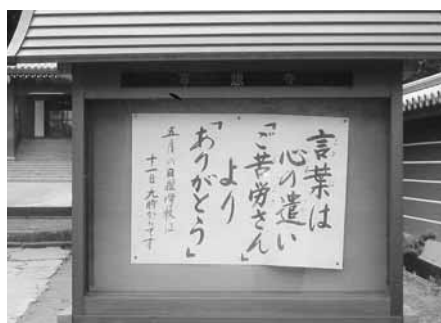 言葉は
心の遣い
「ご苦労さん」
より
「ありがとう」
五月の日曜学校は
十一日 九時からです